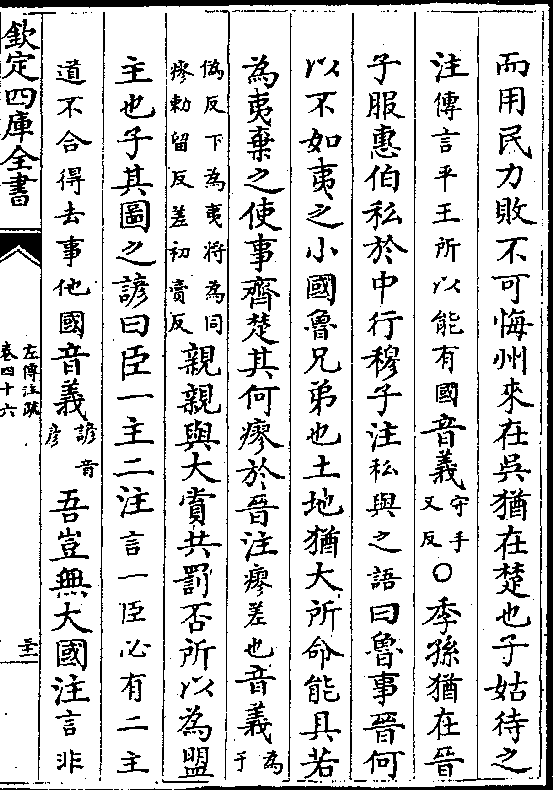 而用民力敗不可悔州來在吳猶在楚也子姑待之
注傳言平王所以能有國音義守手又反○季孫猶在晉
子服惠伯私於中行穆子注私與之語曰魯事晉何
以不如夷之小國魯兄弟也土地猶大所命能具若
為夷棄之使事齊楚其何瘳於晉注瘳差也音義為于
偽反下為夷將為同瘳勅留反差初賣反親親與大賞共罰否所以為盟
主也子其圖之諺曰臣一主二注言一臣必有二主
道不合得去事他國音義諺音彥吾豈無大國注言非
欽定四庫全書
左傳注疏
卷四十六